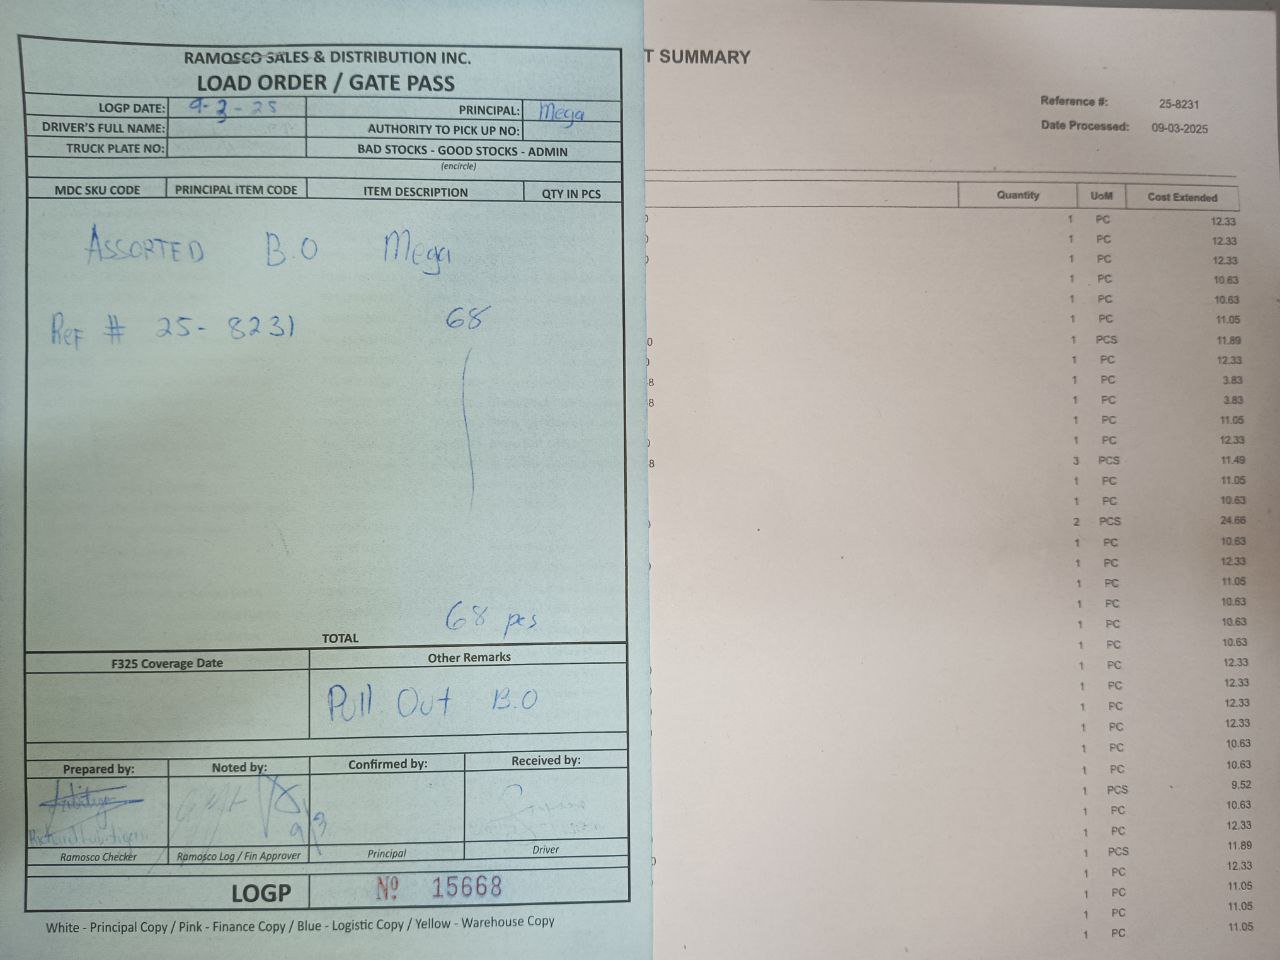 RAMOSCO SALES & DISTRIBUTION INC.
LOAD ORDER / GATE PASS
LOGP DATE: 9-3-25 PRINCIPAL: Mega
DRIVER'S FULL NAME: AUTHORITY TO PICK UP NO:
TRUCK PLATE NO: BAD STOCKS - GOOD STOCKS - ADMIN
(encircle)
MDC SKU CODE PRINCIPAL ITEM CODE ITEM DESCRIPTION QTY IN PCS
ASSORTED B.O Mega
Ref # 25-8231 68
68 pcs
TOTAL
F325 Coverage Date Other Remarks
Pull Out B.O
Prepared by: Noted by: Confirmed by: Received by:
9/3
Ramosco Checker Ramosco Log / Fin Approver Principal Driver
LOGP Nº 15668
White - Principal Copy / Pink - Finance Copy / Blue - Logistic Copy / Yellow - Warehouse Copy
T SUMMARY
Reference #: 25-8231
Date Processed: 09-03-2025
Quantity UoM Cost Extended
1 PC 12.33
1 PC 12.33
1 PC 12.33
1 PC 10.63
1 PC 10.63
1 PC 11.05
0 1 PCS 11.89
1 PC 12.33
8 1 PC 3.83
8 1 PC 3.83
1 PC 11.05
1 PC 12.33
8 3 PCS 11.49
1 PC 11.05
1 PC 10.63
2 PCS 24.66
1 PC 10.63
1 PC 12.33
1 PC 11.05
1 PC 10.63
1 PC 10.63
1 PC 10.63
1 PC 12.33
1 PC 12.33
1 PC 12.33
1 PC 12.33
1 PC 10.63
1 PC 10.63
1 PCS 9.52
1 PC 10.63
1 PC 12.33
1 PCS 11.89
1 PC 12.33
1 PC 11.05
1 PC 11.05
1 PC 11.05